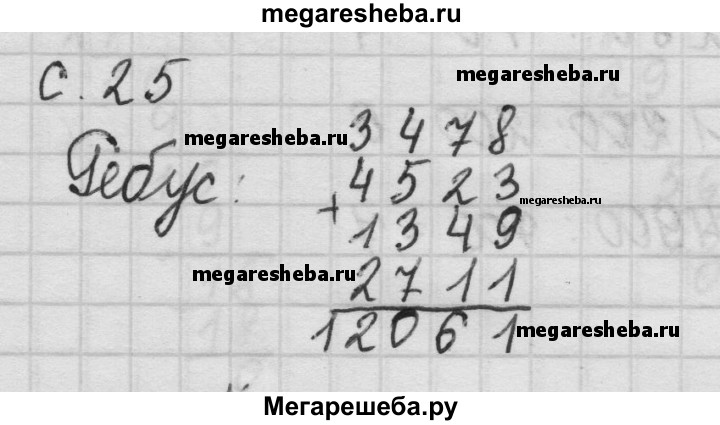 megaresheba.ru
с. 25
megaresheba.ru
megaresheba.ru
Ребус:
3478
4523
megaresheba.ru
+
1349
megaresheba.ru
2711
12061
megaresheba.ru
Мегарешеба.ру